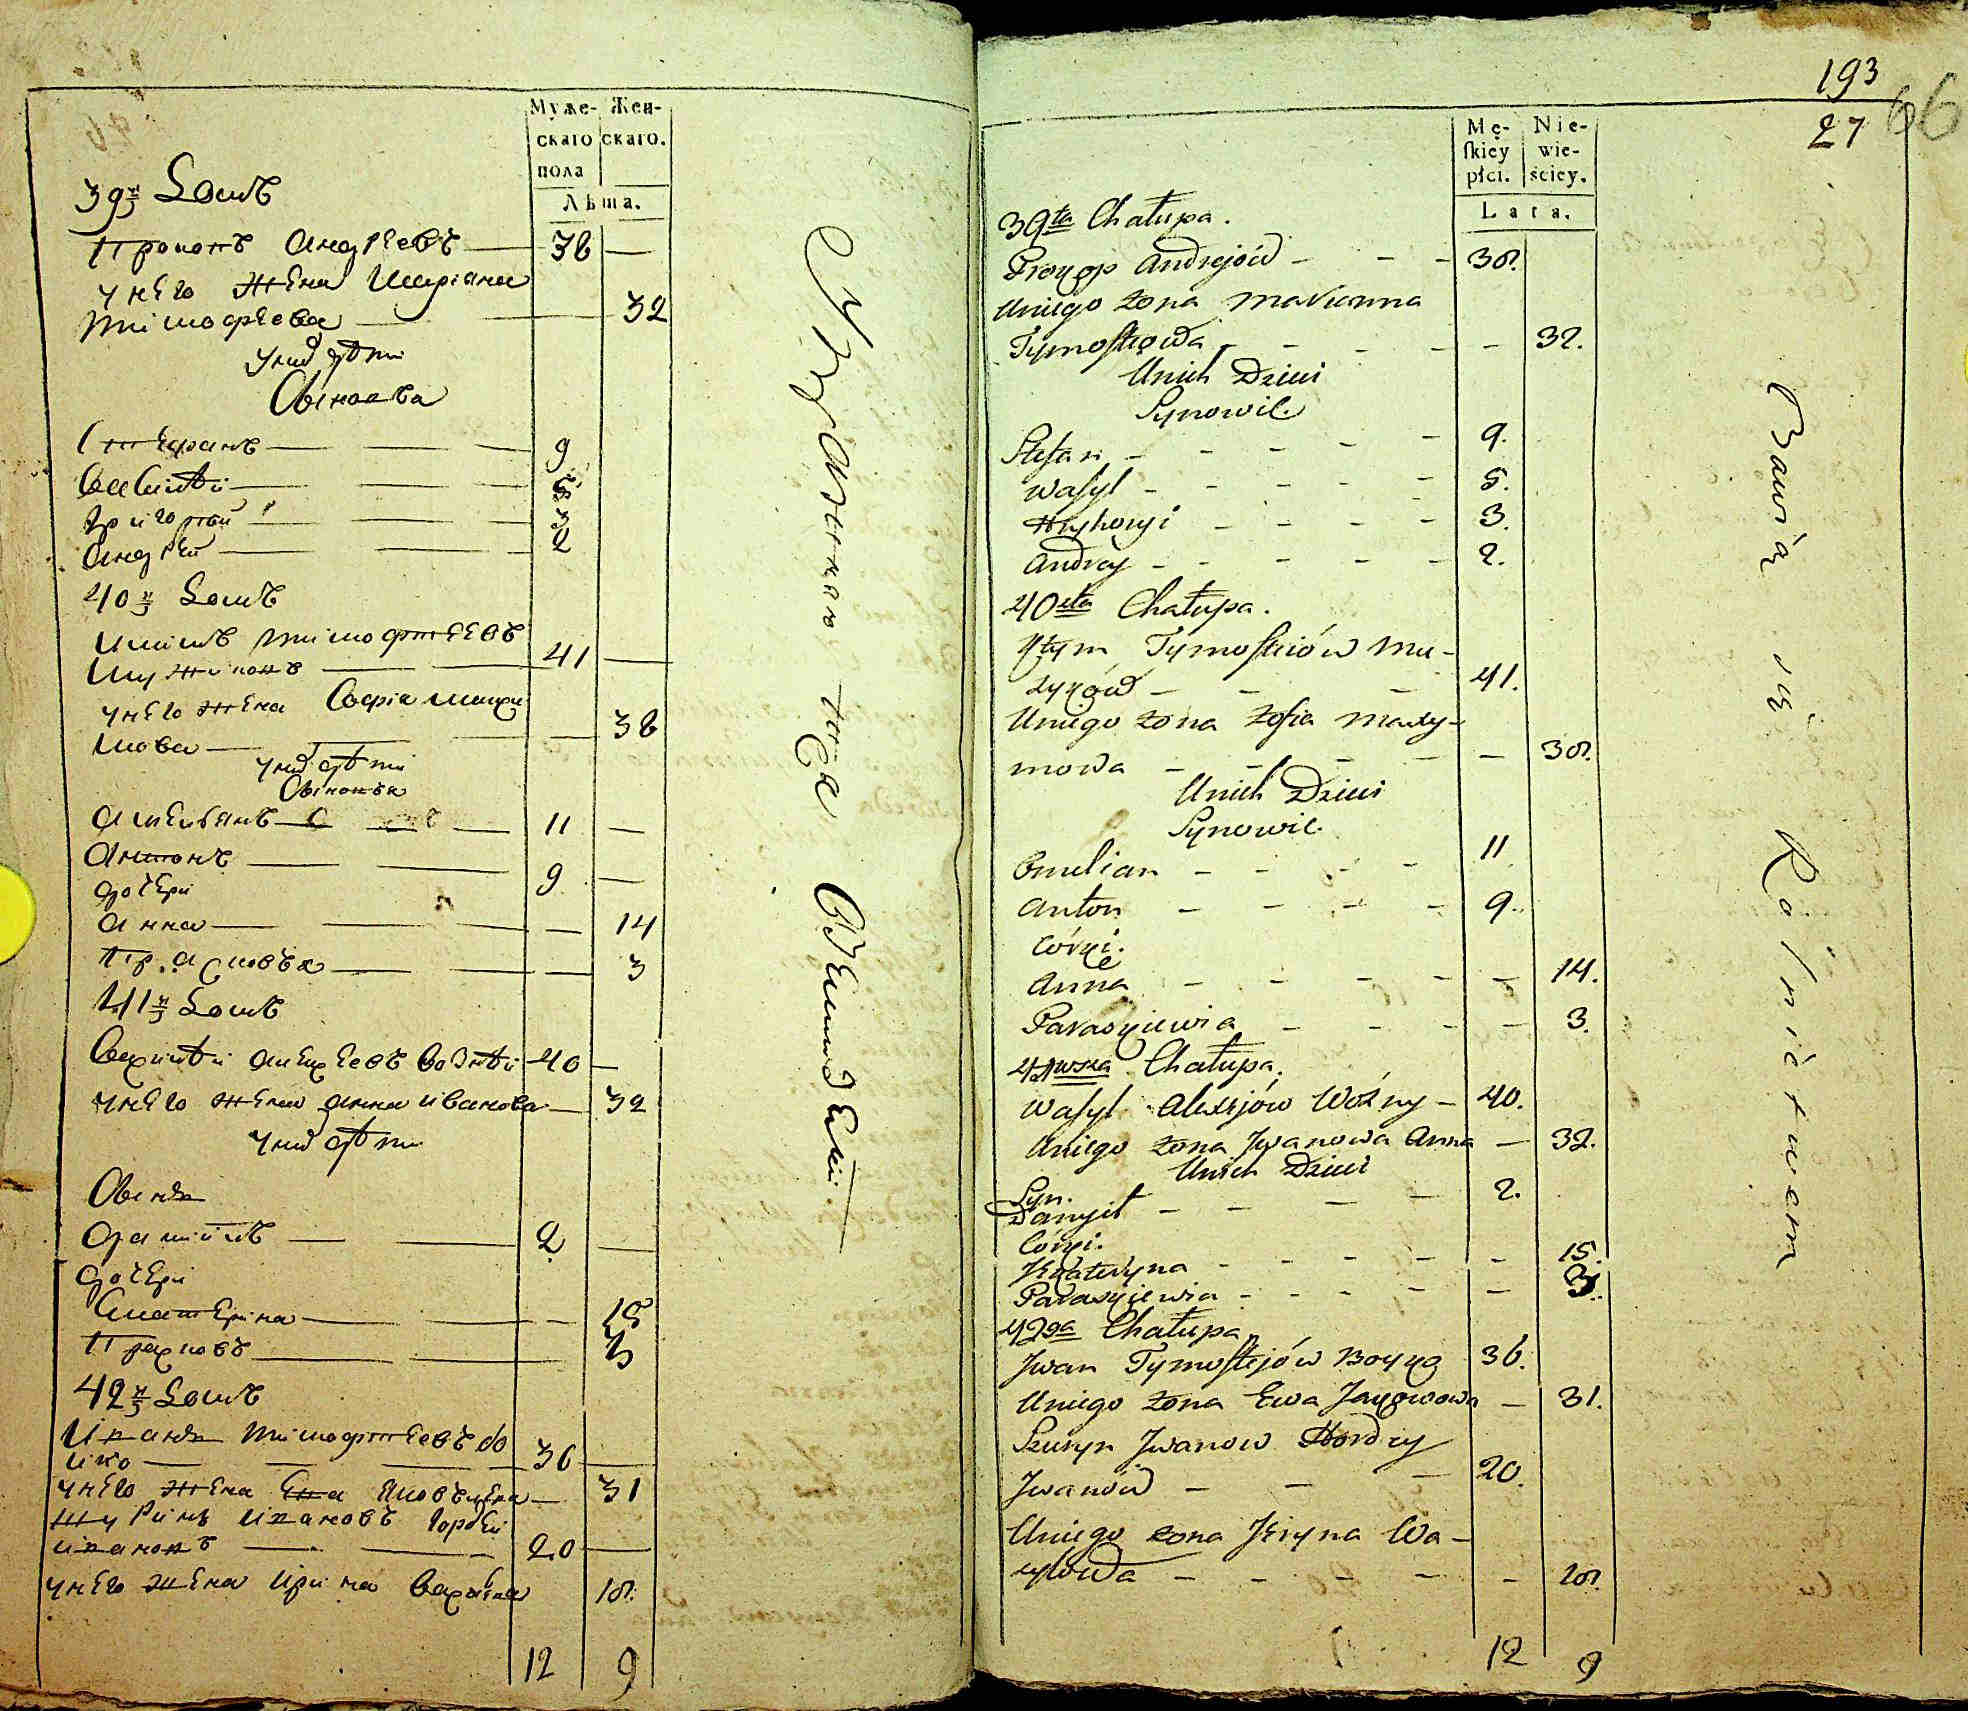 Муже-
скаго
пола
Жен-
скаго.
Лѣта.
39й Домъ
Прокопъ Андреевъ — 38 —
у него жена Маріана
Тимофѣева — 32
у нихъ дѣти
Сыновья
Стефанъ — 9
Василій — 5
Григорій — 3
Андрей — 2
40й Домъ
Тимофѣевъ
— 41 —
у него жена Софія Макси
мова — 38
у нихъ дѣти
Сыновья
Амельянъ — 11 —
Антонъ — 9 —
дочери
Анна — 14
— 3
41й Домъ
Василій Алексѣевъ Возный 40 —
у него жена Анна Иванова — 32
у нихъ дѣти
Сынъ
Данило — 2 —
дочери
Катерина — 15
— 3
42й Домъ
Иванъ Тимофѣевъ Бо
йко — 36 —
у него жена Ева — 31
Шуринъ Ивановъ Гордей
Ивановъ — 20 —
у него жена Ирина — 18.
12 9
193
66
27
Mę-
skiey
płci.
Nie-
wie-
ściey.
Lata.
39ta Chałupa.
Prokop Andrejów - - - 38.
U niego żona Marianna
Tymofiejowa - - - - 32.
U nich Dzieci
Synowie
Stefan - - - - - 9.
Wasyl - - - - - 5.
Hryhoryi - - - - 3.
Andrey - - - - - 2.
40sta Chałupa.
Tymofiejów Mu-
zyków - - - 41.
U niego żona Zofia Maxy-
mowa - - - - - - 38.
U nich Dzieci
Synowie
Emelian - - - - 11
Anton - - - - 9.
Córki.
Anna - - - - - 14.
Paraskiewia - - - - - 3.
41wsza Chałupa.
Wasyl Alexejów Woźny - 40.
U niego żona Iwanowa Anna - 32.
U nich Dzieci
Syn.
Danyił - - - - 2.
Córki.
Kateryna - - - - - - 15.
Paraskiewia - - - - - 3.
42ga Chałupa
Iwan Tymofiejów Boyko 36.
U niego żona Ewa Jakowowa - 31.
Szuryn Iwanow Hordey
Iwanów - - - 20.
U niego żona Iryna Wa-
sylowa - - - - - 18.
12 9
Bawią się Rolnictwem